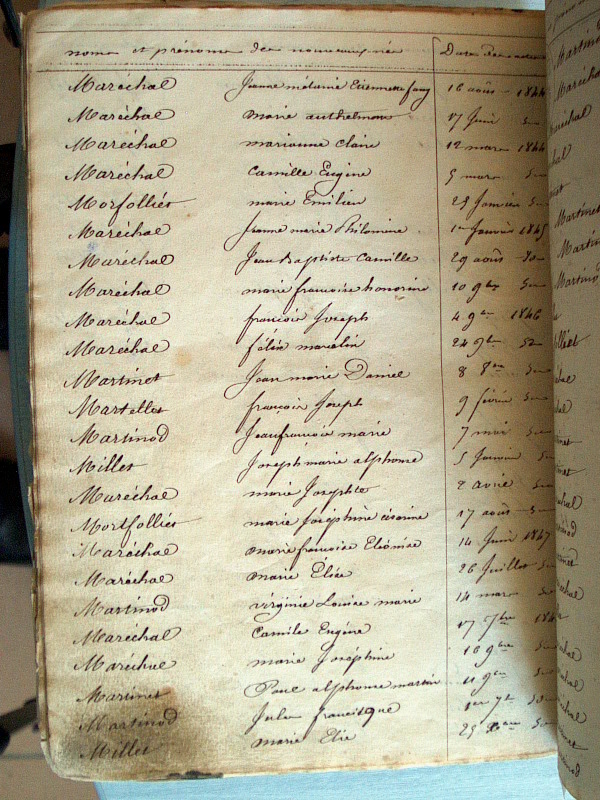 noms et prénoms des nouveaux nés Date des actes
Maréchal Jeanne mélanie Etiennette fany 16 août 1844
Maréchal marie anthelmine 17 Juin
Maréchal marianne claire 12 mars 1844
Maréchal Camille Eugène 5 mars
Morfolliet marie Emilien 25 Janvier
Maréchal Jeanne marie Philomine 1er Janvier 1845
Maréchal Jean Baptiste Camille 29 août
Maréchal marie françoise honorine 10 9bre
Maréchal françois Joseph 4 9bre 1846
Maréchal félix marcelin 24 9bre
Martinet Jean marie Daniel 8 8bre
Martellet françois Joseph 9 février
Martinod Jeanfrançois marie 7 mai
Millet Joseph marie alphonse 5 Janvier
Maréchal marie Josephte 2 avril
Mortfolliet marie Joséphine césarine 17 août
Maréchal marie françoise 14 Juin 1847
Maréchal marie Élise 26 Juillet
Martinod virginie Louise marie 14 mars
Maréchal Camile Eugène 17 7bre
Maréchal marie Joséphine 10 9bre
Martinet Paul alphonse martin 11 9bre
Martinod Jules francisque 1er 7bre
Millet marie Elie 25